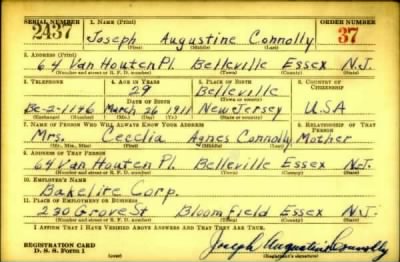 SERIAL NUMBER 1. NAME (Print) ORDER NUMBER
2437 Joseph Augustine Connolly 37
(First) (Middle) (Last)
2. ADDRESS (Print)
64 Van Houten Pl. Belleville Essex N.J.
(Number and street or R. F. D. number) (Town) (County) (State)
3. TELEPHONE 4. AGE IN YEARS 5. PLACE OF BIRTH 6. COUNTRY OF CITIZENSHIP
29 Belleville
DATE OF BIRTH (Town or county)
Be-2-1146 March 26 1911 New Jersey USA
(Exchange) (Number) (Mo.) (Day) (Yr.) (State or country)
7. NAME OF PERSON WHO WILL ALWAYS KNOW YOUR ADDRESS 8. RELATIONSHIP OF THAT PERSON
Mrs. Cecelia Agnes Connolly Mother
(Mr., Mrs., Miss) (First) (Middle) (Last)
9. ADDRESS OF THAT PERSON
64 Van Houten Pl. Belleville Essex N.J.
(Number and street or R. F. D. number) (Town) (County) (State)
10. EMPLOYER'S NAME
Bakelite Corp.
11. PLACE OF EMPLOYMENT OR BUSINESS
230 Grove St Bloomfield Essex N.J.
(Number and street or R. F. D. number) (Town) (County) (State)
I AFFIRM THAT I HAVE VERIFIED ABOVE ANSWERS AND THAT THEY ARE TRUE.
REGISTRATION CARD Joseph Augustine Connolly
D. S. S. Form 1 (over) (Registrant's signature)